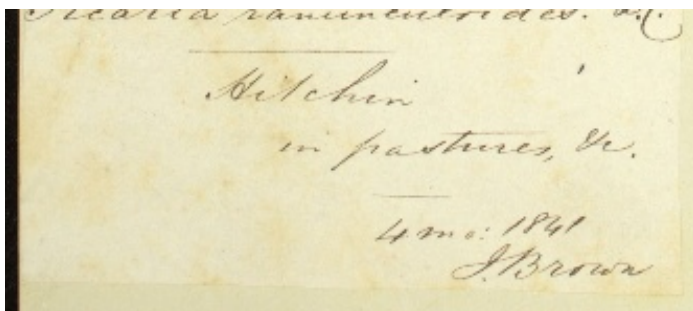 ranunculoides. L.
Hitchin
in pastures, &c.
4 mo: 1841
J. Brown